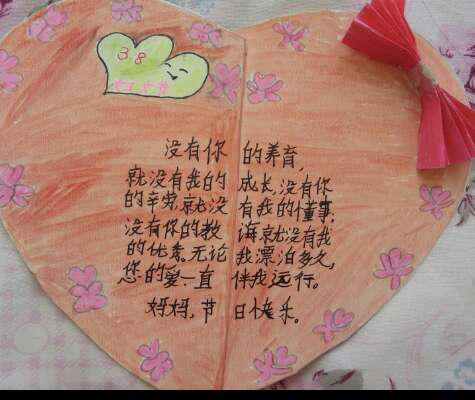 38
没有你的养育,
就没有我的成长,没有你
的辛劳,就没有我的懂事;
没有你的教诲,就没有我
的优秀,无论我漂泊多久,
您的爱一直伴我远行。
妈妈,节日快乐。